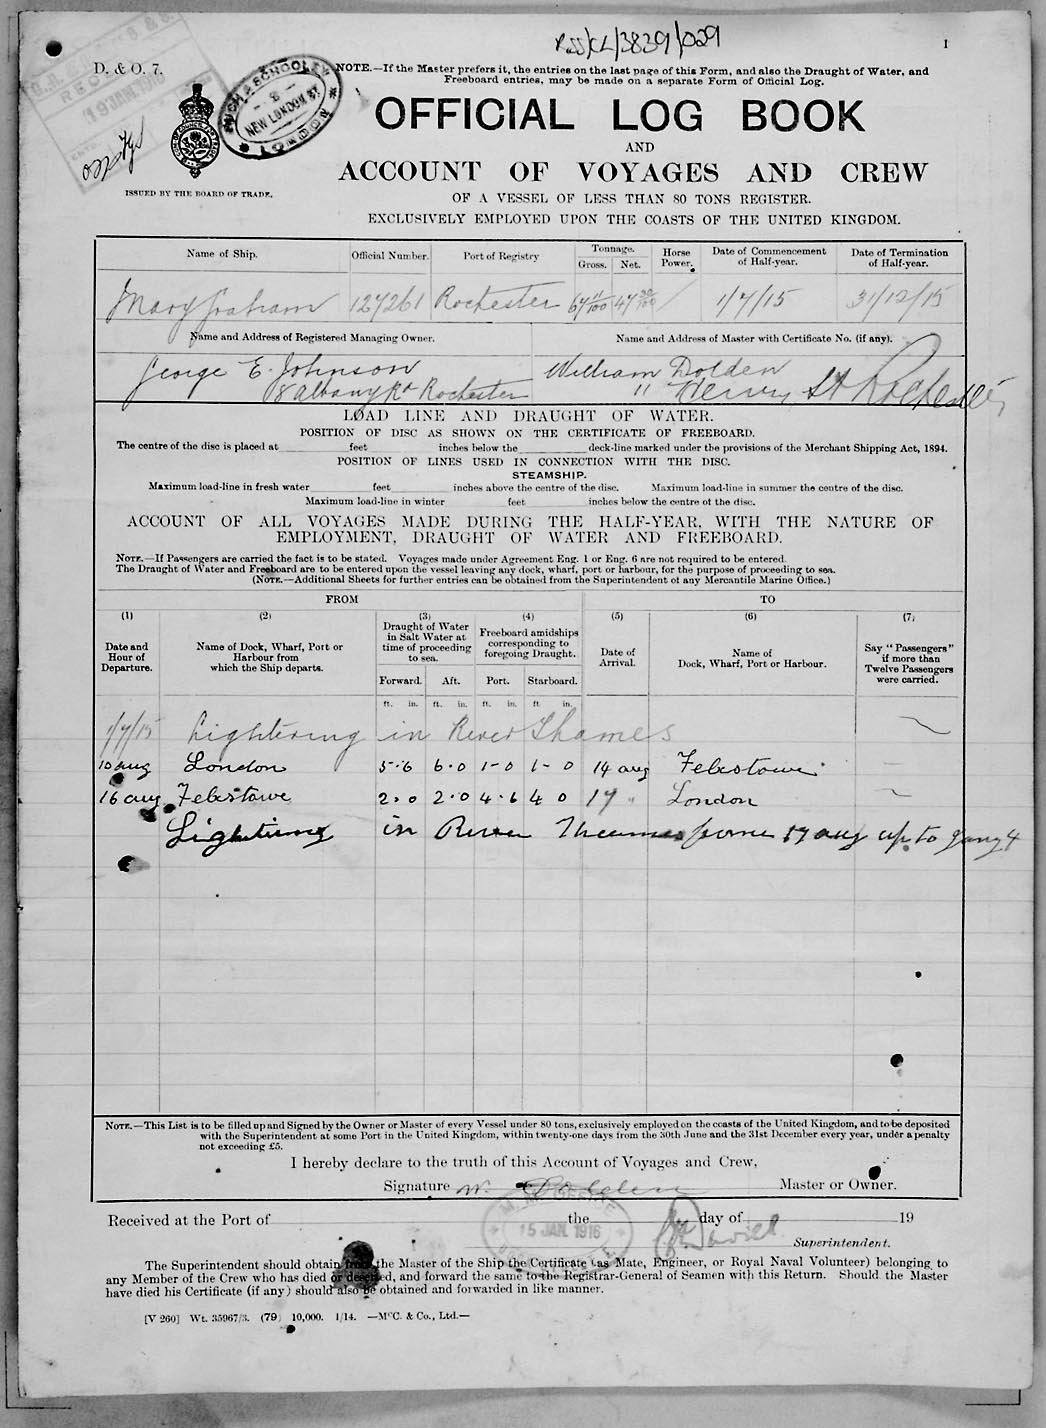 RSS/CL/3839/029
1
D. & O. 7.
19 JAN 1916
NEW LONDON ST.
LONDON
ISSUED BY THE BOARD OF TRADE.
NOTE.—If the Master prefers it, the entries on the last page of this Form, and also the Draught of Water, and
Freeboard entries, may be made on a separate Form of Official Log.
OFFICIAL LOG BOOK
AND
ACCOUNT OF VOYAGES AND CREW
OF A VESSEL OF LESS THAN 80 TONS REGISTER.
EXCLUSIVELY EMPLOYED UPON THE COASTS OF THE UNITED KINGDOM.
Name of Ship. Official Number. Port of Registry Tonnage. Gross. Net. Horse Power. Date of Commencement of Half-year. Date of Termination of Half-year.
Mary Graham 127261 Rochester 67 11/100 47 30/100 / 1/7/15 31/12/15
Name and Address of Registered Managing Owner. Name and Address of Master with Certificate No. (if any).
George E. Johnson William Dolden
8 Albany Rd Rochester 11 Henry St Rochester
LOAD LINE AND DRAUGHT OF WATER.
POSITION OF DISC AS SHOWN ON THE CERTIFICATE OF FREEBOARD.
The centre of the disc is placed at feet inches below the deck-line marked under the provisions of the Merchant Shipping Act, 1894.
POSITION OF LINES USED IN CONNECTION WITH THE DISC.
STEAMSHIP.
Maximum load-line in fresh water feet inches above the centre of the disc. Maximum load-line in summer the centre of the disc.
Maximum load-line in winter feet inches below the centre of the disc.
ACCOUNT OF ALL VOYAGES MADE DURING THE HALF-YEAR, WITH THE NATURE OF
EMPLOYMENT, DRAUGHT OF WATER AND FREEBOARD.
NOTE.—If Passengers are carried the fact is to be stated. Voyages made under Agreement Eng. 1 or Eng. 6 are not required to be entered.
The Draught of Water and Freeboard are to be entered upon the vessel leaving any dock, wharf, port or harbour, for the purpose of proceeding to sea.
(NOTE.—Additional Sheets for further entries can be obtained from the Superintendent of any Mercantile Marine Office.)
FROM TO
(1) (2) (3) (4) (5) (6) (7)
Date and Hour of Departure. Name of Dock, Wharf, Port or Harbour from which the Ship departs. Draught of Water in Salt Water at time of proceeding to sea. Freeboard amidships corresponding to foregoing Draught. Date of Arrival. Name of Dock, Wharf, Port or Harbour. Say "Passengers" if more than Twelve Passengers were carried.
Forward. Aft. Port. Starboard.
ft. in. ft. in. ft. in. ft. in.
1/7/15 Lightering in River Thames
10 aug London 5·6 6·0 1-0 1-0 14 aug Felestowe
16 aug Felestowe 2·0 2·0 4·6 4 0 17 " London
Lightering in River Thames from 17 aug up to
NOTE.—This List is to be filled up and Signed by the Owner or Master of every Vessel under 80 tons, exclusively employed on the coasts of the United Kingdom, and to be deposited
with the Superintendent at some Port in the United Kingdom, within twenty-one days from the 30th June and the 31st December every year, under a penalty
not exceeding £5.
I hereby declare to the truth of this Account of Voyages and Crew,
Signature W. Dolden Master or Owner.
Received at the Port of the day of 19
15 JAN. 1916
Superintendent.
The Superintendent should obtain from the Master of the Ship the Certificate (as Mate, Engineer, or Royal Naval Volunteer) belonging to
any Member of the Crew who has died or deserted, and forward the same to the Registrar-General of Seamen with this Return. Should the Master
have died his Certificate (if any) should also be obtained and forwarded in like manner.
[V 260] Wt. 35967/3. (79) 10,000. 1/14. —McC. & Co., Ltd.—